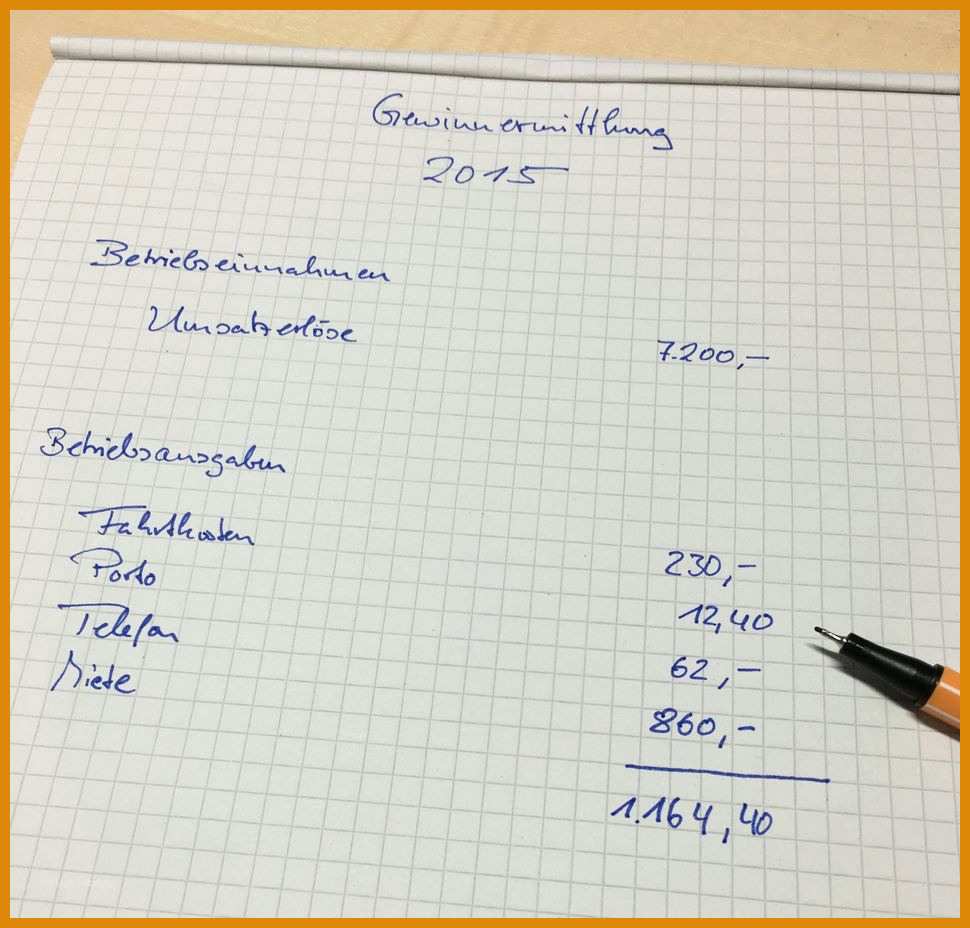 Gewinnermittlung
2015
Betriebseinnahmen
Umsatzerlöse 7.200,—
Betriebsausgaben
Fahrtkosten 230,—
Porto 12,40
Telefon 62,—
Miete 860,-
1.164,40